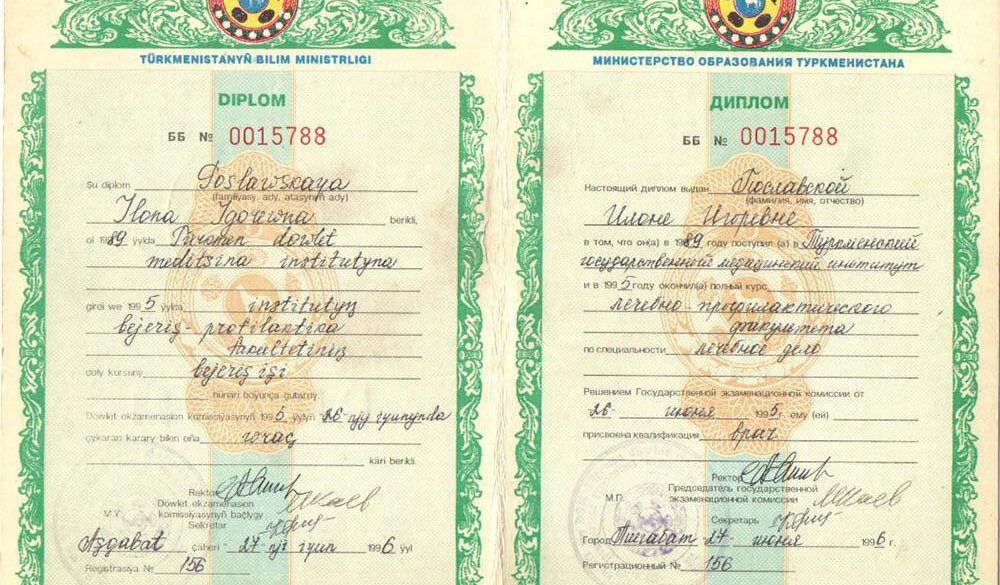 TÜRKMENISTANYŇ BILIM MINISTRLIGI
DIPLOM
ББ № 0015788
Şu diplom Poslawskaya
(familiýasy, ady, atasynyň ady)
Ilona Igorewna berildi,
ol 1989 ýylda Türkmen döwlet
meditsina institutyna
girdi we 1995 ýylda institutyň
bejeriş-profilaktika
fakultetiniň
doly kursuny bejeriş işi
hünäri boýunça gutardy.
Döwlet ekzamenasion komissiýasynyň 1995 ýylyň 26-njy iyunynda
çykaran karary bilen oňa wraç
käri berildi.
Rektor
Döwlet ekzamenasion
M.Ý. komissiýasynyň başlygy
Sekretar
Aşgabat şäheri 27-nji iyun 1996 ýyl
Registrasiýa № 156
МИНИСТЕРСТВО ОБРАЗОВАНИЯ ТУРКМЕНИСТАНА
ДИПЛОМ
ББ № 0015788
Настоящий диплом выдан Пославской
(фамилия, имя, отчество)
Илоне Игоревне
в том, что он(а) в 1989 году поступил (а) в Туркменский
государственный медицинский институт
и в 1995 году окончил(а) полный курс
лечебно-профилактического
факультета
по специальности лечебное дело
Решением Государственной экзаменационной комиссии от
26 июня 1995 г. ему (ей)
присвоена квалификация врач
Ректор
Председатель государственной
М.П. экзаменационной комиссии
Секретарь
Город Ашгабат 27 июня 1996 г.
Регистрационный № 156